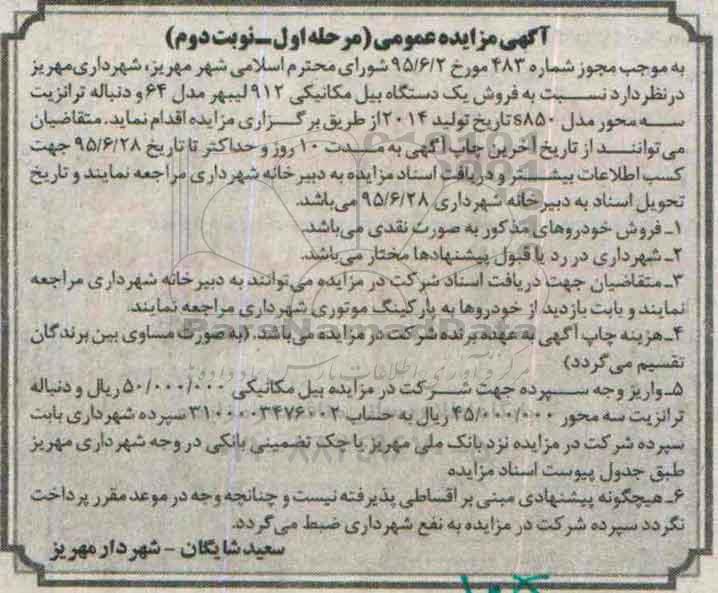 آگهی مزایده عمومی (مرحله اول ـ نوبت دوم)
به موجب مجوز شماره ۴۸۳ مورخ ۹۵/۶/۲ شورای محترم اسلامی شهر مهریز، شهرداری مهریز
درنظر دارد نسبت به فروش یک دستگاه بیل مکانیکی ۹۱۲ لیبهر مدل ۶۴ و دنباله ترانزیت
سه محور مدل s۸۵۰ تاریخ تولید ۲۰۱۴ از طریق برگزاری مزایده اقدام نماید. متقاضیان
می توانند از تاریخ آخرین چاپ آگهی به مدت ۱۰ روز و حداکثر تا تاریخ ۹۵/۶/۲۸ جهت
کسب اطلاعات بیشتر و دریافت اسناد مزایده به دبیرخانه شهرداری مراجعه نمایند و تاریخ
تحویل اسناد به دبیرخانه شهرداری ۹۵/۶/۲۸ می باشد.
۱ـ فروش خودروهای مذکور به صورت نقدی می باشد.
۲ـ شهرداری در رد یا قبول پیشنهادها مختار می باشد.
۳ـ متقاضیان جهت دریافت اسناد شرکت در مزایده می توانند به دبیرخانه شهرداری مراجعه
نمایند و بابت بازدید از خودروها به پارکینگ موتوری شهرداری مراجعه نمایند.
ParsNamadData
۴ـ هزینه چاپ آگهی به عهده برنده شرکت در مزایده می باشد. (به صورت مساوی بین برندگان
تقسیم می گردد)
۵ـ واریز وجه سپرده جهت شرکت در مزایده بیل مکانیکی ۵۰/۰۰۰/۰۰۰ ریال و دنباله
ترانزیت سه محور ۴۵/۰۰۰/۰۰۰ ریال به حساب ۳۱۰۰۰۰۳۴۷۶۰۰۲ سپرده شهرداری بابت
سپرده شرکت در مزایده نزد بانک ملی مهریز یا چک تضمینی بانکی در وجه شهرداری مهریز
طبق جدول پیوست اسناد مزایده
۶ـ هیچگونه پیشنهادی مبنی بر اقساطی پذیرفته نیست و چنانچه وجه در موعد مقرر پرداخت
نگردد سپرده شرکت در مزایده به نفع شهرداری ضبط می گردد.
سعید شایگان - شهردار مهریز